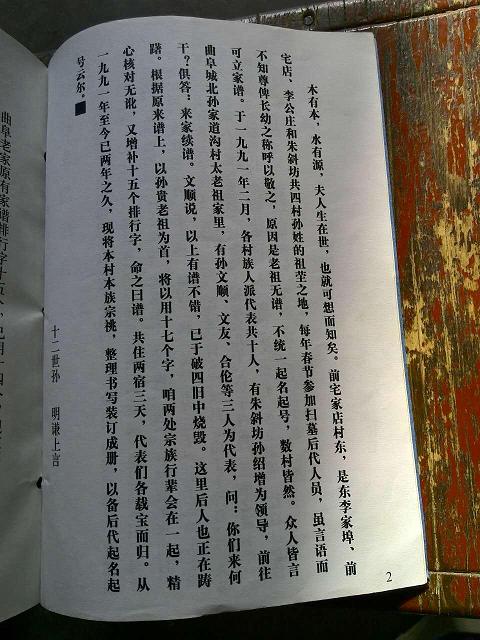 木有本，水有源，夫人生在世，也就可想而知矣。前宅家店村东，是东李家埠、前
宅店、李公庄和朱斜坊共四村孙姓的祖茔之地，每年春节参加扫墓后代人员，虽言语而
不知尊俾长幼之称呼以敬之，原因是老祖无谱，不统一起名起号，数村皆然。众人皆言
可立家谱。于一九九一年二月，各村族人派代表共十人，有朱斜坊孙绍增为领导，前往
曲阜城北孙家道沟村太老祖家里，有孙文顺、文友、合伦等三人为代表，问：你们来何
干？俱答：来家续谱。文顺说，以上有谱不错，已于破四旧中烧毁。这里后人也正在踌
躇。根据原来谱上，以孙贵老祖为首，将以用十七个字，咱两处宗族行辈会在一起，精
心核对无讹，又增补十五个排行字，命之曰谱。共住两宿三天，代表们各载宝而归。从
一九九一年至今已两年之久，现将本村本族宗桃，整理书写装订成册，以备后代起名起
号云尔。
十二世孙 明谦上言
2
曲阜老家原有家谱排行字十五个，已用十四个